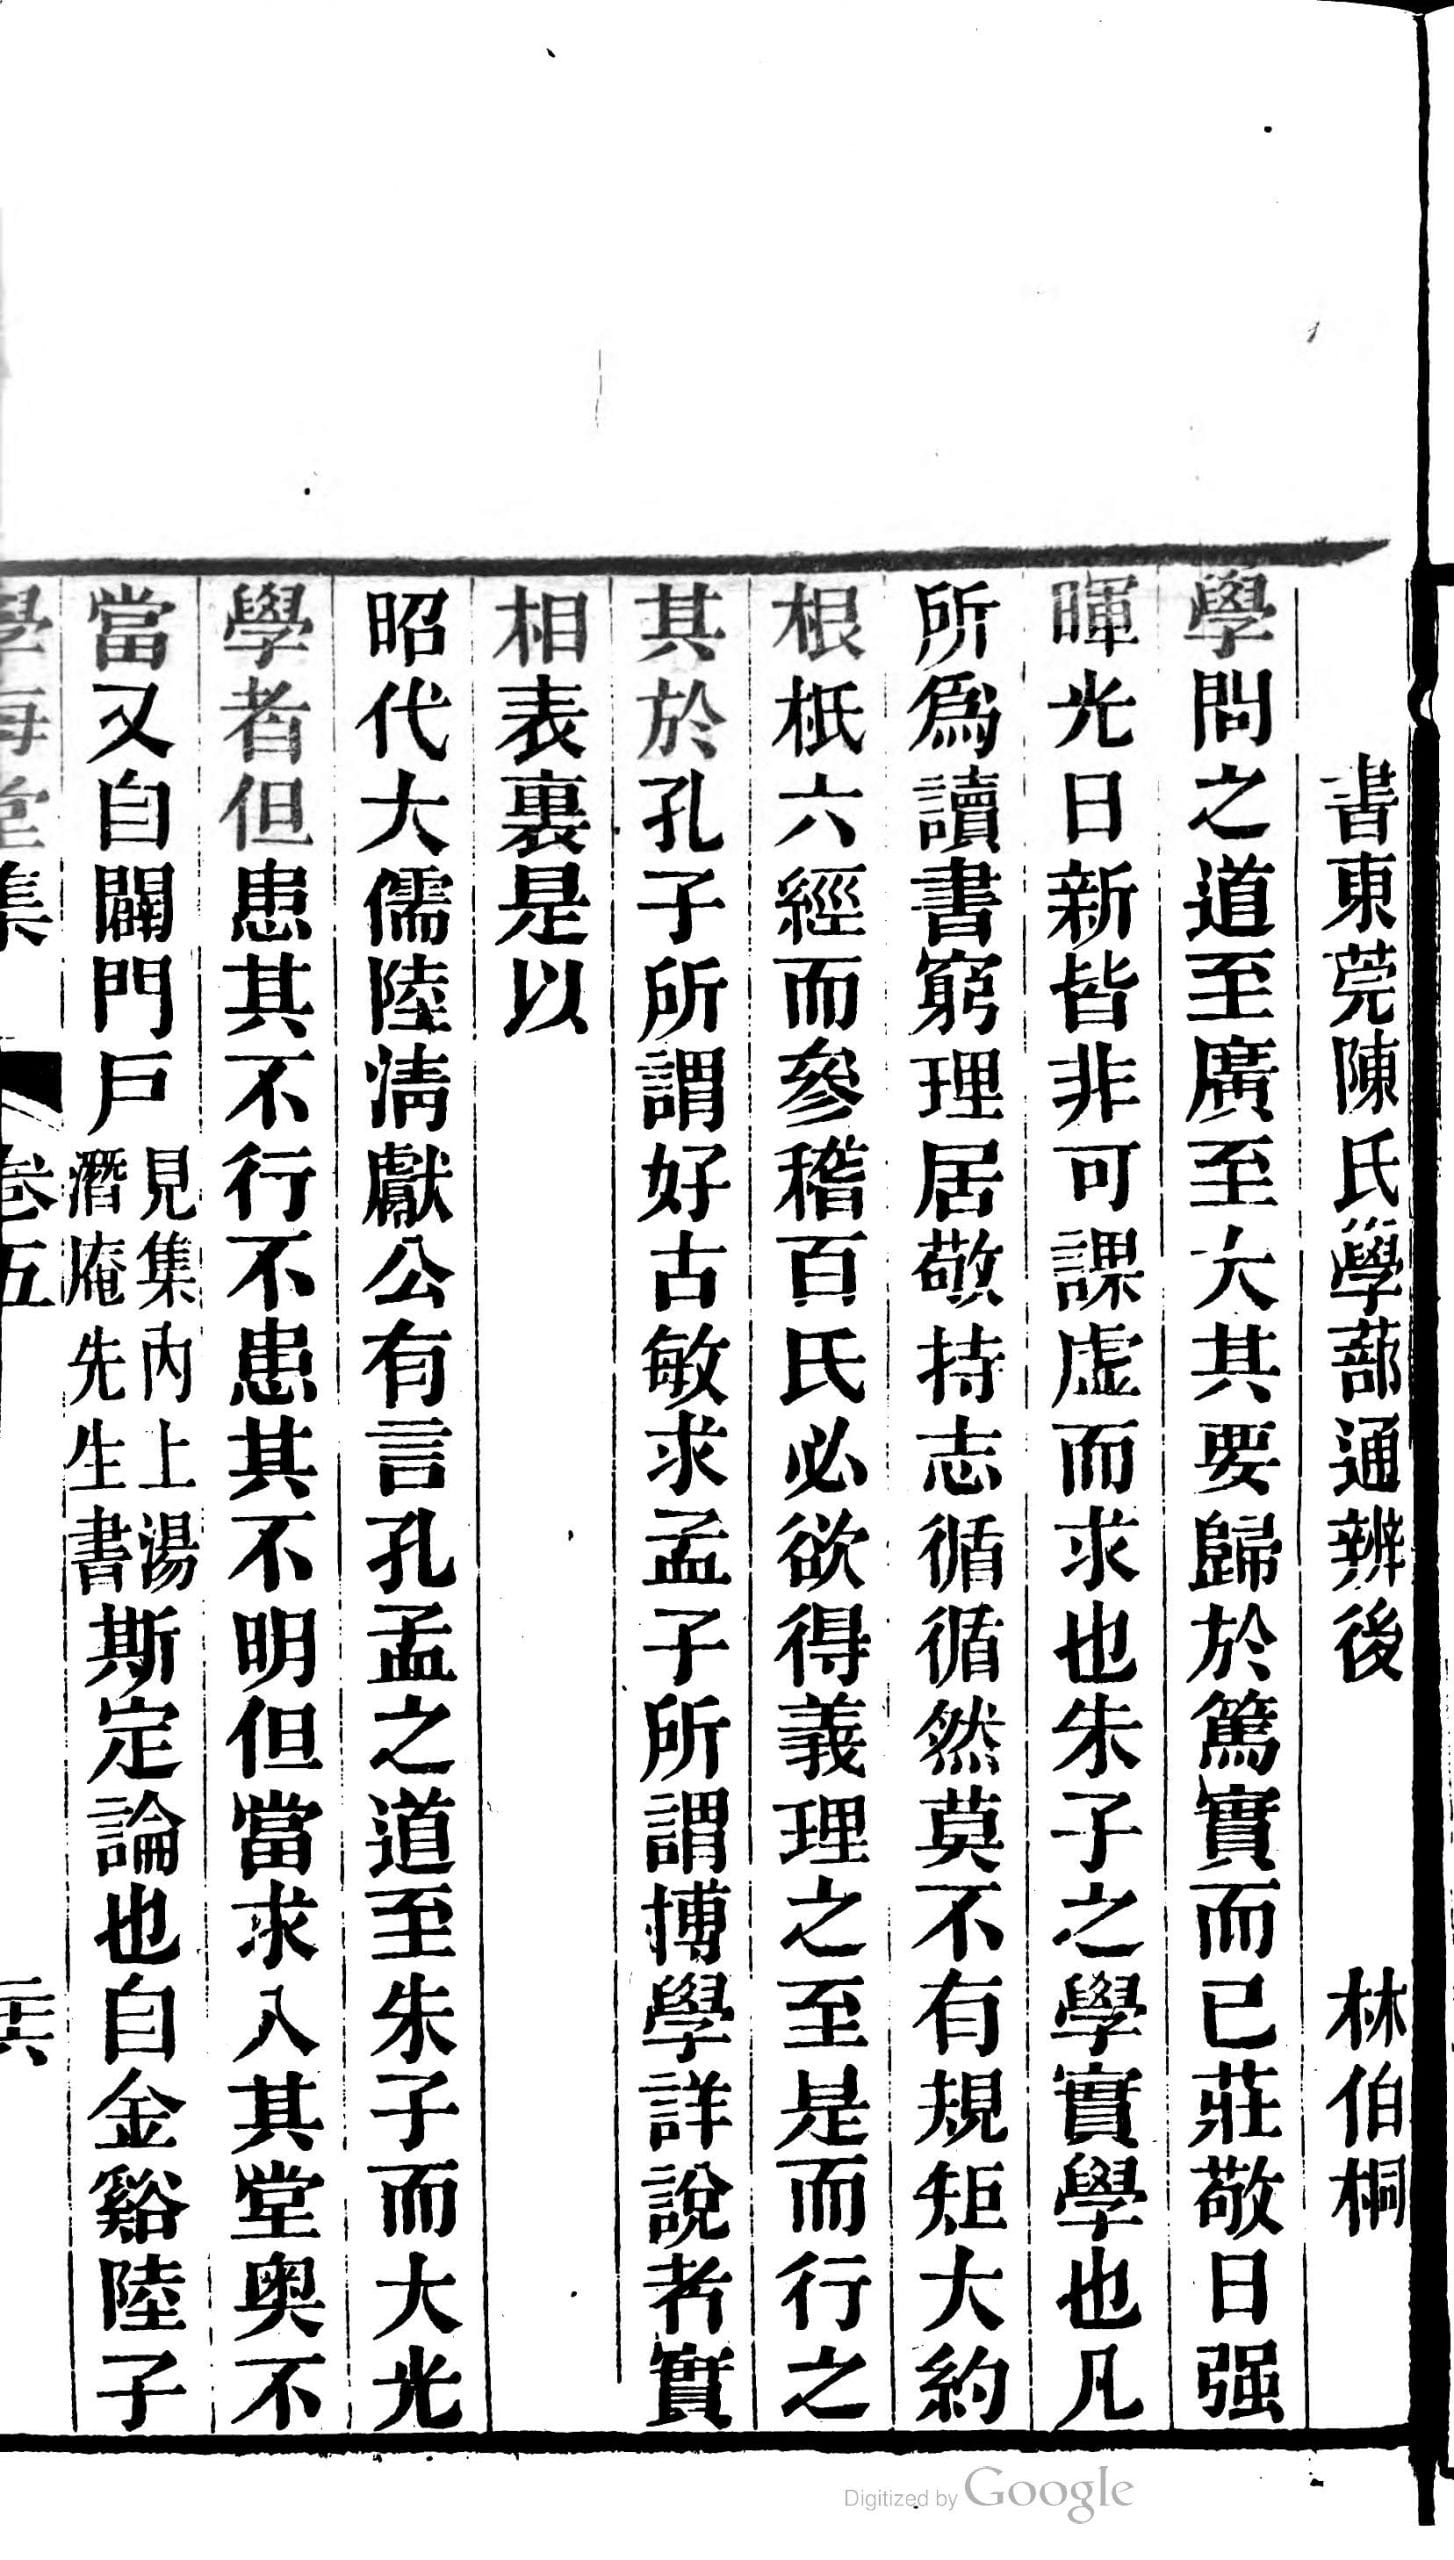 書東莞陳氏學蔀通辨後 林伯桐
學問之道至廣至大其要歸於篤實而已莊敬日强
暉光日新皆非可課虛而求也朱子之學實學也凡
所爲讀書窮理居敬持志循循然莫不有規矩大約
根柢六經而參稽百氏必欲得義理之至是而行之
其於孔子所謂好古敏求孟子所謂博學詳說者實
相表裏是以
昭代大儒陸淸獻公有言孔孟之道至朱子而大光
學者但患其不行不患其不明但當求入其堂奧不
當又自闢門戸見集內上湯潛庵先生書斯定論也自金谿陸子
學海堂集 卷五 二六
Digitized by Google